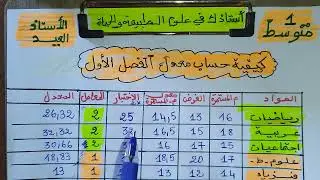 أستاذك في علوم الطبيعة والحياة
1 متوسط
الأستاذ
العيد
كيفية حساب معدل الفصل الأول
المواد م.المستمرة الفرض الاختبار المعامل المعدل
رياضيات 16 13 14,5 25 2 26,32
عربية 18 15 16,5 2 32,32
اجتماعيات 15 17 16 2 30,66
علوم.ط. 17 20 18,5 1 18,33
فيزياء 14 12 13 1